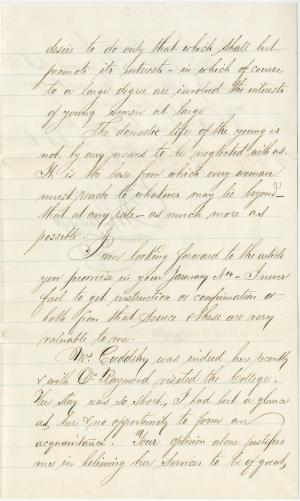 desire to do only that which shall best
promote its interests - in which of course
to a large degree are involved the interests
of young women at large
The domestic life of the young is
not by any means to be neglected with us.
It is the base from which every woman
must reach to whatever may lie beyond -
that at any rate - as much more as
possible.
I am looking forward to the article
you promise in your January No. - I never
fail to get instruction or confirmation or
both from that source & these are very
valuable to me.
Mrs. Cuddehy was indeed here recently
& with Dr Raymond visited the College.
Her stay was so short, I had but a glance
at her & no opportunity to form an
acquaintance. Your opinion alone justifies
me in believing her services to be of great